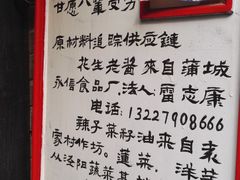 甘愿八辈受方
原材料追踪供应鏈
花生老醬來自蒲城
永信食品厂.法人:雷志康
电话:13227908666
辣子菜籽油来自袁
家村作坊。蓮菜,洋芋
从泾阳蔬菜基